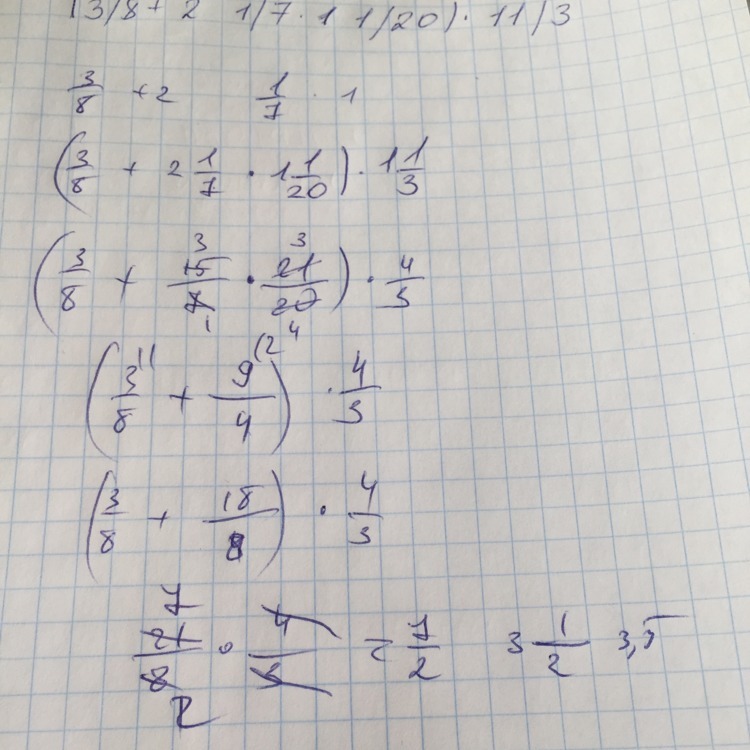 (3/8 + 2 1/7 · 1 1/20) · 1 1/3
3/8 + 2 1/7 · 1
(3/8 + 2 1/7 · 1 1/20) · 1 1/3
(3/8 + 15/7 · 21/20) · 4/3
3 3
1 4
(3/8 + 9/4) · 4/3
(1 (2
(3/8 + 18/8) · 4/3
7
21/8 · 4/3 = 7/2 3 1/2 3,5
2